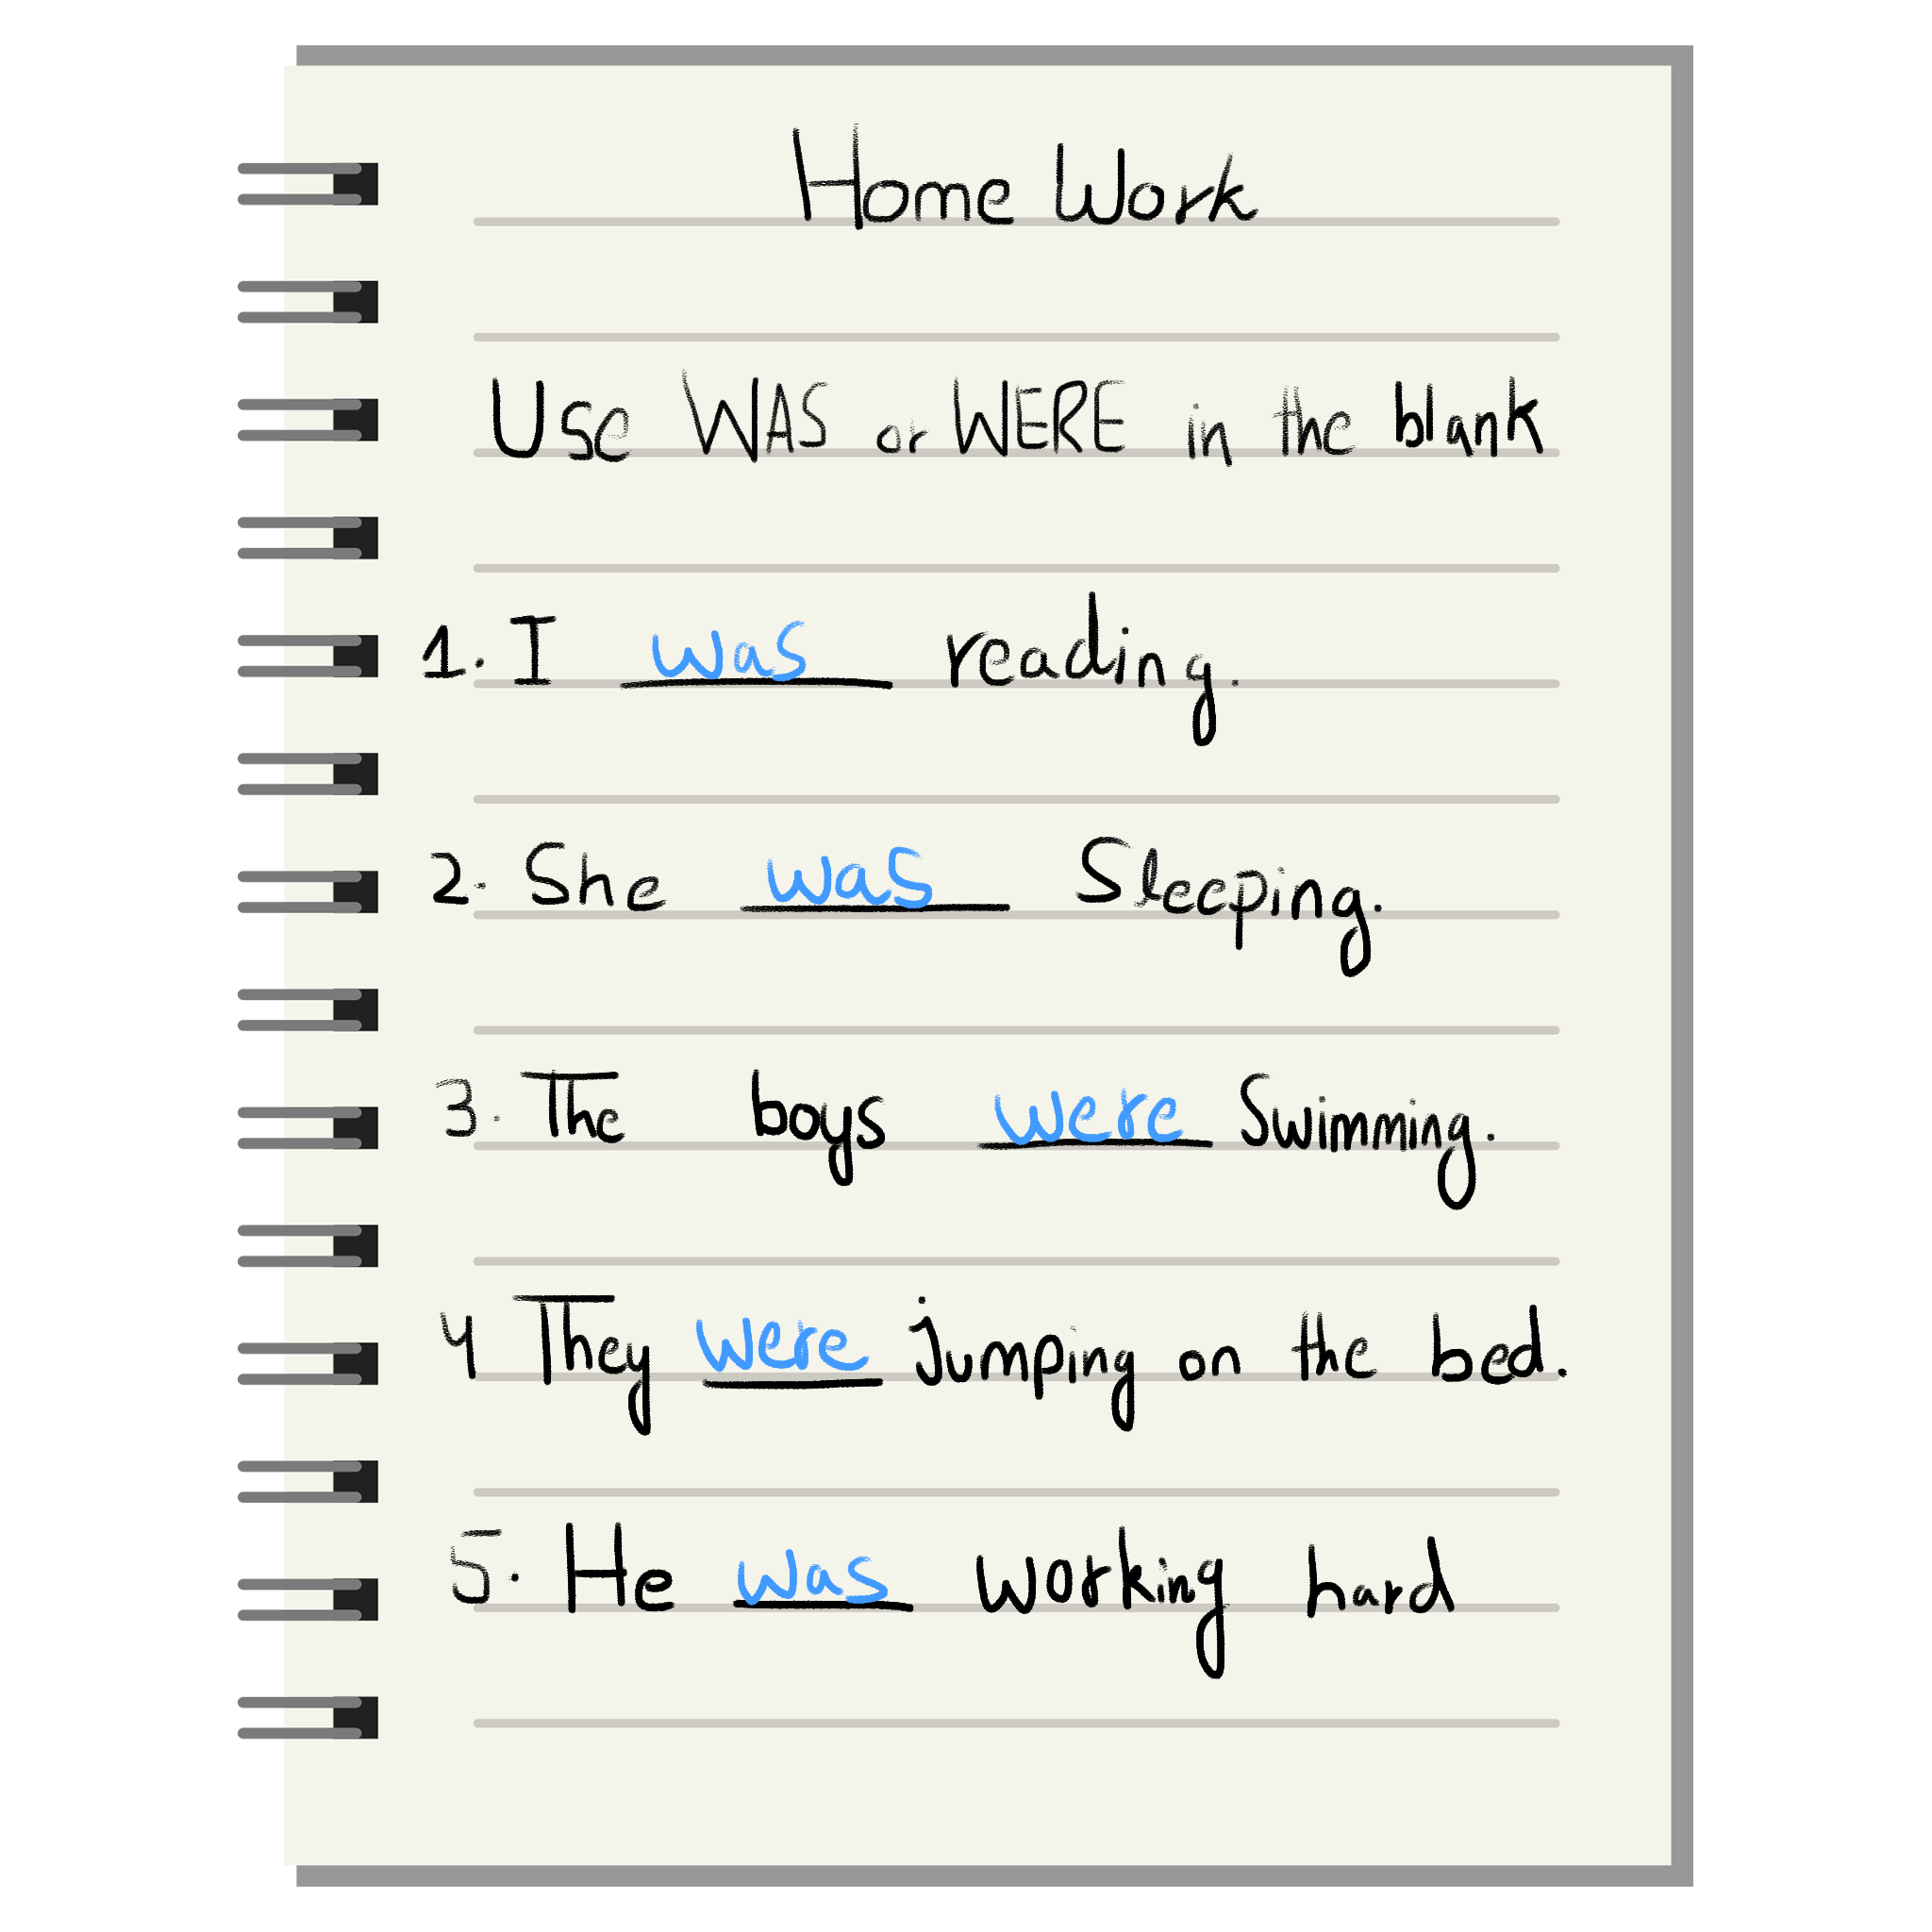 Home Work
Use WAS or WERE in the blank
1. I was reading.
2. She was Sleeping.
3. The boys were Swimming.
4 They were jumping on the bed.
5. He was working hard